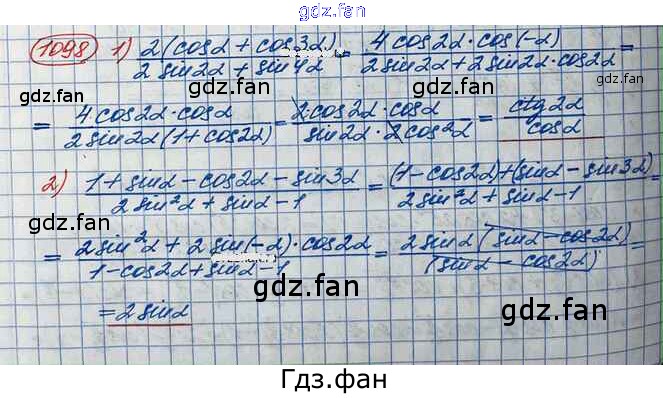 gdz.fan
1098 1) 2(cosα + cos3α) / 2 sin2α + sin4α = 4cos2α·cos(-α) / 2sin2α + 2sin2α·cos2α =
gdz.fan gdz.fan
= 4cos2α·cosα / 2sin2α(1+cos2α) = 2cos2α·cosα / sin2α·2cos²α = ctg2α / cosα
gdz.fan gdz.fan
2) 1+sinα-cos2α-sin3α / 2sin²α+sinα-1 = (1-cos2α)+(sinα-sin3α) / 2sin²α+sinα-1 =
gdz.fan gdz.fan
= 2sin²α + 2sin(-α)·cos2α / 1-cos2α+sinα-1 = 2sinα(sinα-cos2α) / (sinα-cos2α) =
gdz.fan gdz.fan
= 2sinα
gdz.fan
Гдз.фан